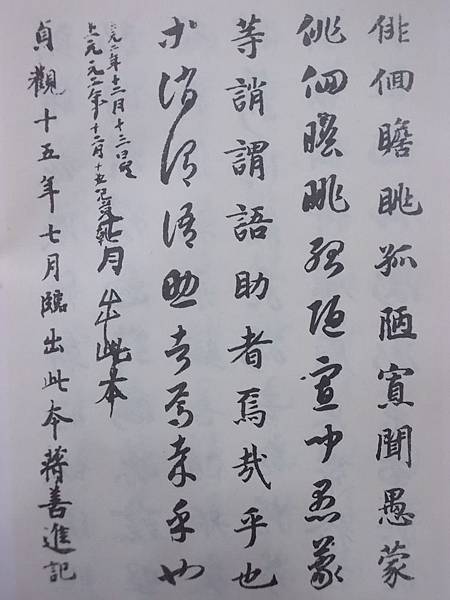 俳佪瞻眺孤陋寡聞愚蒙
俳佪瞻眺孤陋寡聞愚蒙
等誚謂語助者焉哉乎也
等誚謂語助者焉哉乎也
年十二月十三日
上元二年十二月十五
七月出此本
貞觀十五年七月臨出此本蔣善進記